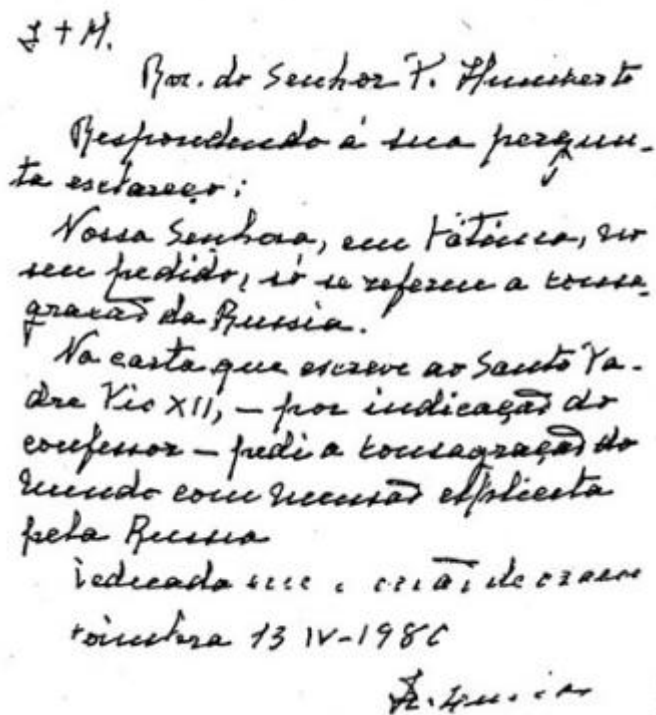 J + M.
Rev. do Senhor P. Humberto
Respondendo á sua pergun-
ta esclareço:
Nossa Senhora, em Fátima, no
seu pedido, só se referiu a consa-
gração da Russia.
Na carta que escreve ao Santo Pa-
dre Pio XII, – por indicação do
confessor – pedi a consagração do
mundo com mensão esplicita
pela Russia
Dedicada em
Coimbra 13 IV-1980
Ir. Lucia